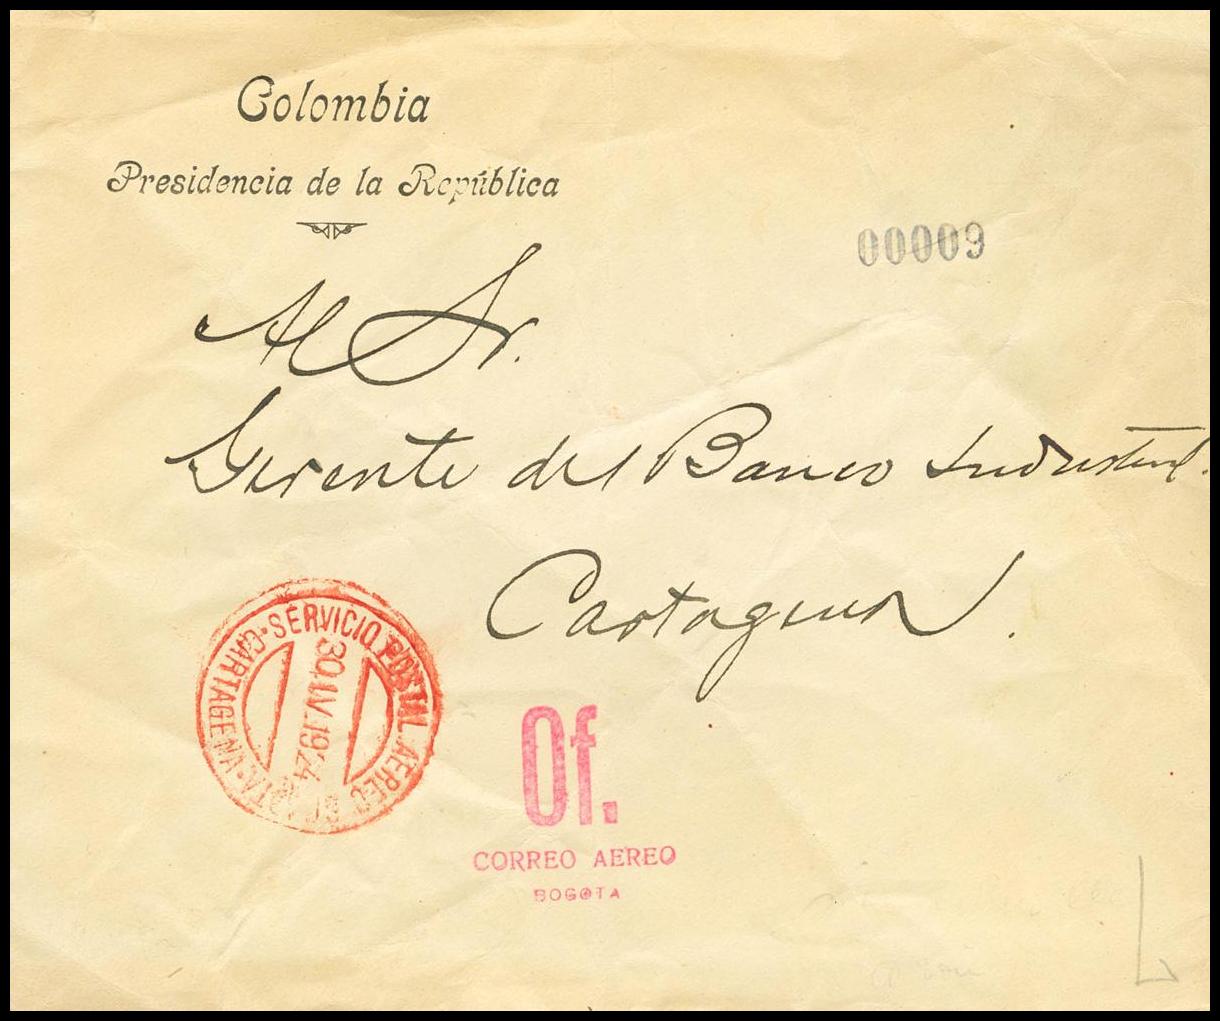 Colombia
Presidencia de la República
00009
Al Sr.
Gerente del Banco Industrial.
Cartagena.
SERVICIO POSTAL AEREO BOGOTA - CARTAGENA -
30.IV.1924
Of.
CORREO AEREO
BOGOTA